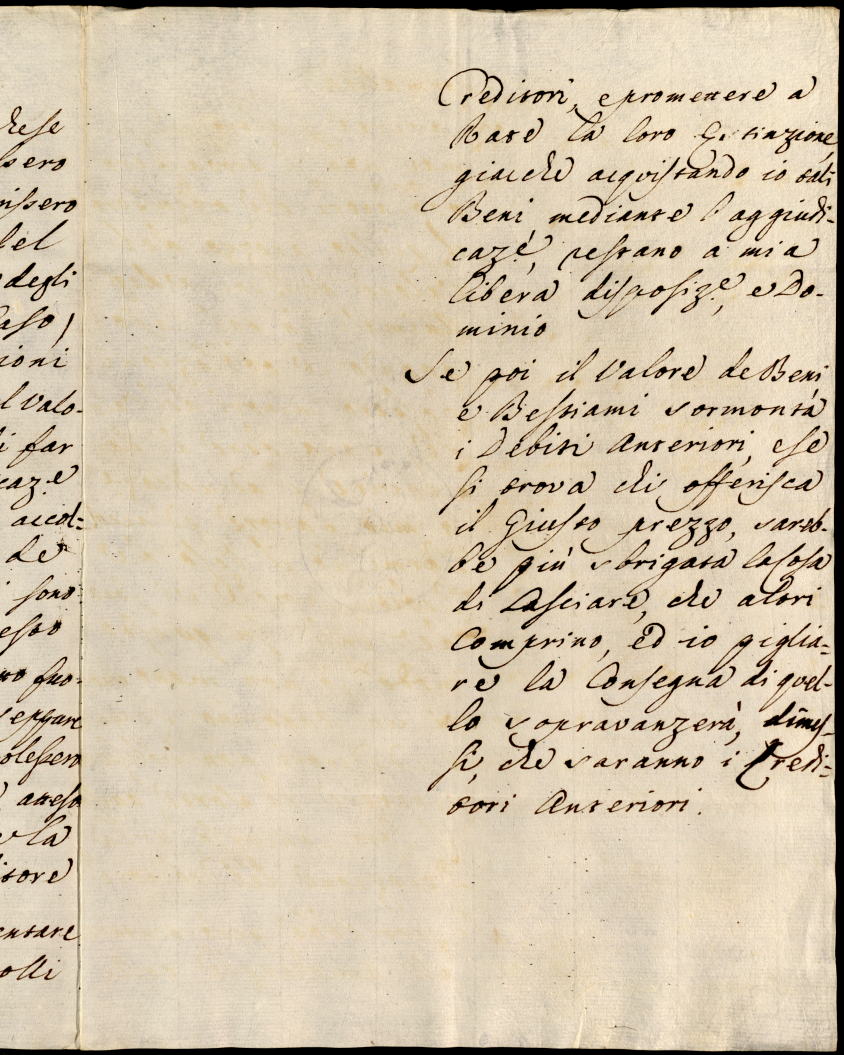 chese
ssero
rissero
del
degli
Caso,
ioni
l Valo-
i far
caz.e
accol-
de
i sono
esto
no fuo-
seppure
olessero
atteso
la
itore
entare
olli
Creditori, e promettere a
Rate la loro
giacche acquistando io tali
Beni mediante l'aggiudi-
caz.e, restano a mia
libera disposiz.e, e Do-
minio
Se poi il Valore de Beni
e Bestiami sormonta
i Debiti Anteriori, e se
si trova chi offerisca
il Giusto prezzo, sareb-
be più sbrigata la Cosa
di Lasciare, che altri
Comprino, ed io piglia-
re la Consegna di quel-
lo sopravanzerà, dimes-
si, che saranno i Credi-
tori Anteriori.